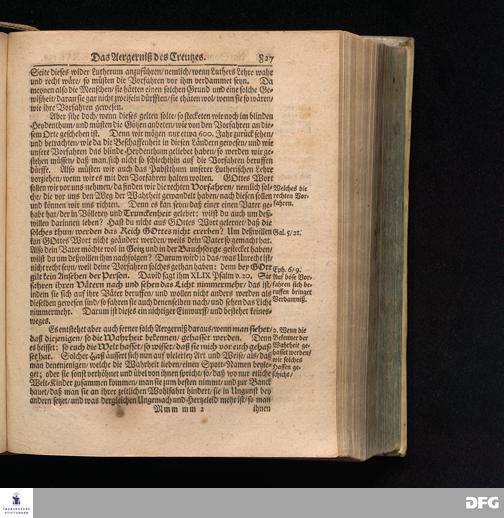 Das Aergerniß des Creutzes. 827
Seite dieses wider Lutherum anzuführen/nemlich/wenn Luthers Lehre wahr
und recht wäre/ so müsten die Vorfahren vor ihm verdammet seyn. Da
meynen also die Menschen/ sie hätten einen solchen Grund und eine solche Ge-
wißheit/ daran sie gar nicht zweifeln dürfften/ sie thäten wol/ wenn sie so wären/
wie ihre Vorfahren gewesen.
Aber sihe doch/ wenn dieses gelten solte/ so stecketen wir noch im blinden
Heydenthum/ und müsten die Götzen anbeten/ wie von den Vorfahren an die-
sem Orte geschehen ist. Denn wir mögen nur etwa 600. Jahr zurück sehen/
und betrachten/ wie da die Beschaffenheit in diesen Ländern gewesen/ und wie
unsere Vorfahren das blinde Heydenthum geliebet haben/ so werden wir ge-
stehen müssen/ daß man sich nicht so schlechthin auf die Vorfahren beruffen
dürffe. Also müsten wir auch das Pabstthum unserer Lutherischen Lehre
vorziehen/ wenn wir es mit den Vorfahren halten wolten. GOttes Wort
sollen wir vor uns nehmen/ da finden wir die rechten Vorfahren/ nemlich sol-
che/ die vor uns den Weg der Wahrheit gewandelt haben/ nach diesen sollen
und können wir uns richten. Denn es kan seyn/ daß einer einen Vater ge-
habt hat/ der in Völlerey und Trunckenheit gelebet: wilst du auch um deß-
willen darinnen leben? Hast du nicht aus GOttes Wort gelernet/ daß die
solches thun/ werden das Reich GOttes nicht ererben? Um deßwillen
kan GOttes Wort nicht geändert werden/ weils dein Vater so gemacht hat.
Also dein Vater möchte wol in Geitz und in der Bauchsorge gestecket haben/
wilst du um deßwillen ihm nachfolgen? Darum wird ja das/ was Unrecht ist/
nicht recht seyn/ weil deine Vorfahren solches gethan haben: denn bey GOtt
gilt kein Ansehen der Person. David sagt ihm XLIX Psalm v. 20. Sie
fahren ihren Vätern nach und sehen das Licht nimmermehr/ das ist/
indem sie sich auf ihre Väter beruffen/ und wollen nicht anders werden als
dieselben gewesen sind/ so fahren sie auch denenselben nach/ und sehen das Licht
nimmermehr. Darum ist dieses ein nichtiger Einwurff/ und bestehet keines-
weges.
Es entstehet aber auch ferner solch Aergerniß daraus/ wenn man siehet/
daß diejenigen/ so die Wahrheit bekennen/ gehasset werden. Denn
es heisset: so euch die Welt hasset/ so wisset/ daß sie mich vor euch gehas-
set hat. Solcher Haß äussert sich nun auf vielerley Art und Weise/ als/ daß
man denenjenigen/ welche die Wahrheit lieben/ einen Spott-Namen beyle-
get; oder sie sonst verhöhnet und übel von ihnen spricht/ so/ daß wo nur etliche
Welt-Kinder zusammen kommen/ man sie zum besten nimmt/ und zur Banck
hauet/ daß man sie an ihrer zeitlichen Wohlfahrt hindert/ sie in Ungunst bey
andern setzet/ und was dergleichen Ungemach und Hertzeleid mehr ist/ so man
Mmm mm 2 ihnen
Welches die
rechten Vor-
fahren.
Gal. 5/21.
Eph. 6/9.
Auf böse Vor-
fahren sich be-
ruffen bringet
Verdamniß.
2. Wenn die
Bekenner der
Wahrheit ge-
hasset werden/
wie solches
Hassen ge-
schicht/
FRANCKESCHE
STIFTUNGEN
DFG